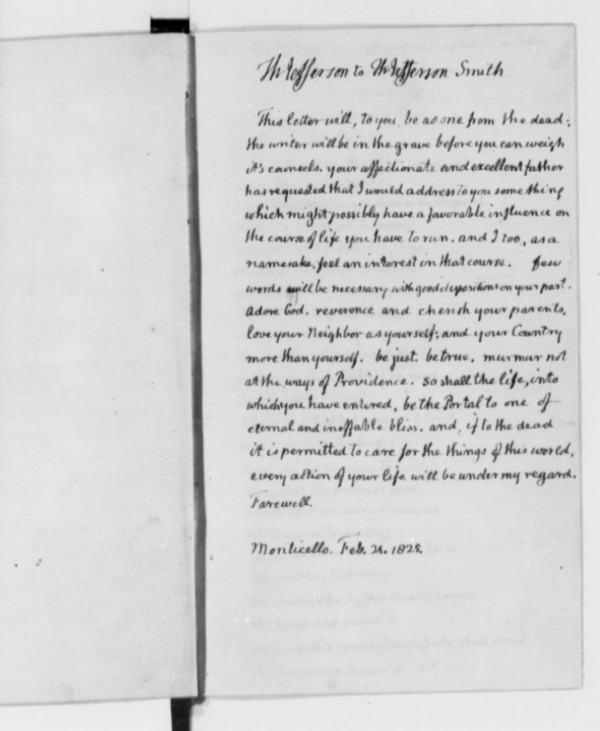 Th Jefferson to Th Jefferson Smith
This letter will, to you be as one from the dead;
the writer will be in the grave before you can weigh
it's counsels. your affectionate and excellent father
has requested that I would address to you something
which might possibly have a favorable influence on
the course of life you have to run. and I too, as a
namesake, feel an interest in that course. few
words will be necessary with good dispositions on your part.
adore God. reverence and cherish your parents,
love your neighbor as yourself; and your Country
more than yourself. be just. be true. murmur not
at the ways of Providence. so shall the life, into
which you have entered, be the Portal to one of
eternal and ineffable bliss. and, if to the dead
it is permitted to care for the things of this world,
every action of your life will be under my regard.
Farewell.
Monticello. Feb. 21. 1825.